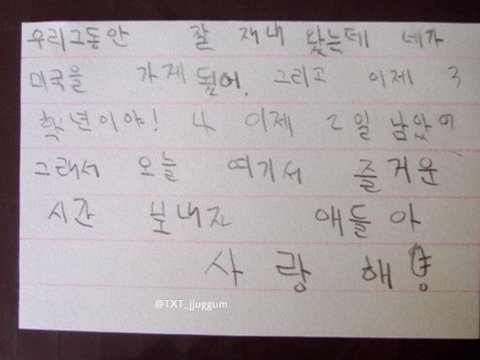 우리그동안 잘 재내 왔는데 네가
미국을 가게 됬어. 그리고 이제 3
학년이야! 나 이제 2일 남았어
그래서 오늘 여기서 즐거운
시간 보내자 얘들아
사랑해용
@TXT_jjuggum